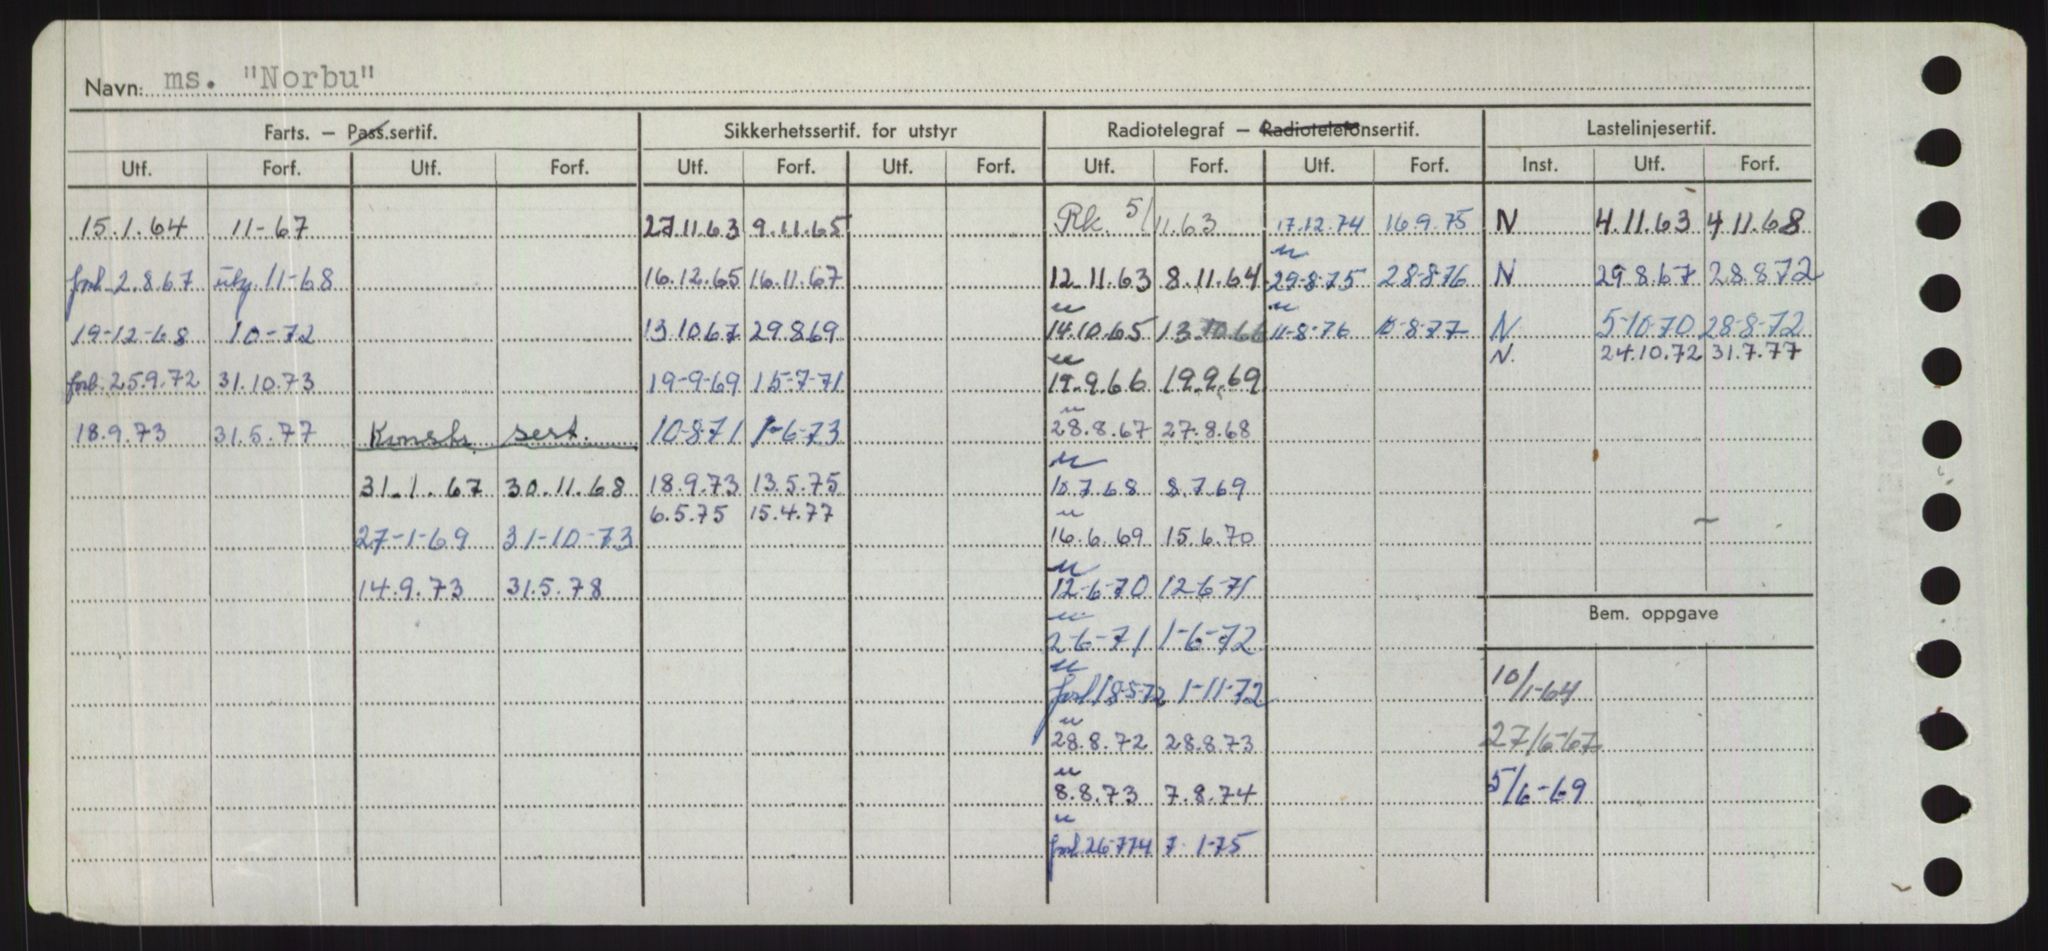 Navn: ms. "Norbu"
Farts. – Pass.sertif. Sikkerhetssertif. for utstyr Radiotelegraf – Radiotelefonsertif. Lastelinjesertif.
Utf. Forf. Utf. Forf. Utf. Forf. Utf. Forf. Utf. Forf. Utf. Forf. Inst. Utf. Forf.
15.1.64 11-67 27.11.63 9.11.65 Rk. 5/11.63 17.12.74 16.9.75 N 4.11.63 4 11.68
forl. 2.8.67 11-68 16.12.65 16.11.67 12.11.63 8.11.64 29-8-75 28-8-76 N 29.8.67 28.8.72
19-12-68 10-72 13.10.67 29.8.69 14.10.65 13.10.66 11-8-76 10-8-77 N 5-10-70 28-8-72
N. 24.10.72 31.7.77
forl. 25.9.72 31.10.73 19-9-69 15-7-71 19.9.66 19.9.69
18.9.73 31.5.77 Konstr. sert. 10-8-71 1-6-73 28.8.67 27.8.68
31.1.67 30.11.68 18.9.73 13.5.75 10.7.68 8.7.69
6.5.75 15.4.77
27-1-69 31-10-73 16.6.69 15.6.70
14.9.73 31.5.78 12-6-70 12-6-71
Bem. oppgave
2-6-71 1-6-72
10/1-64
forl 18-5-72 1-11-72
28.8.72 28.8.73 27/6-67
8.8.73 7.8.74 5/6-69
forl. 26-7-74 7-1-75